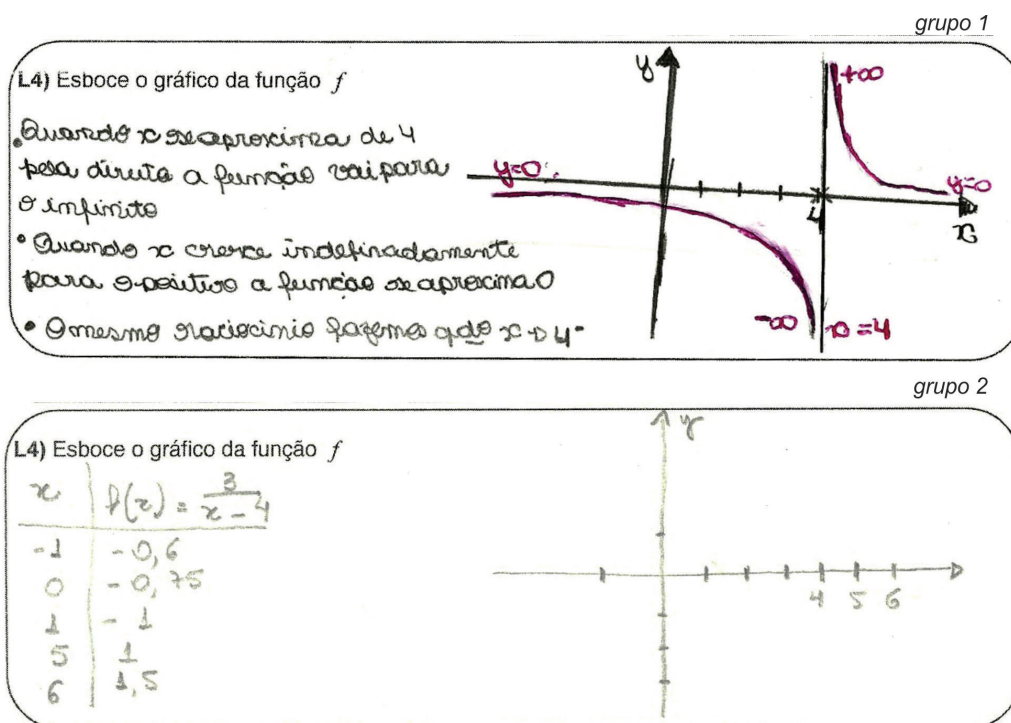 grupo 1
L4) Esboce o gráfico da função f
• Quando x se aproxima de 4
pela direita a função vai para
o infinito
• Quando x cresce indefinadamente
para o positivo a função se aproxima 0
• O mesmo raciocínio fazemos qdo x → 4⁻
y
+∞
y=0
y=0
4
x
-∞
x=4
grupo 2
L4) Esboce o gráfico da função f
x f(x) = 3/(x-4)
-1 -0,6
0 -0,75
1 -1
5 1
6 1,5
y
4 5 6